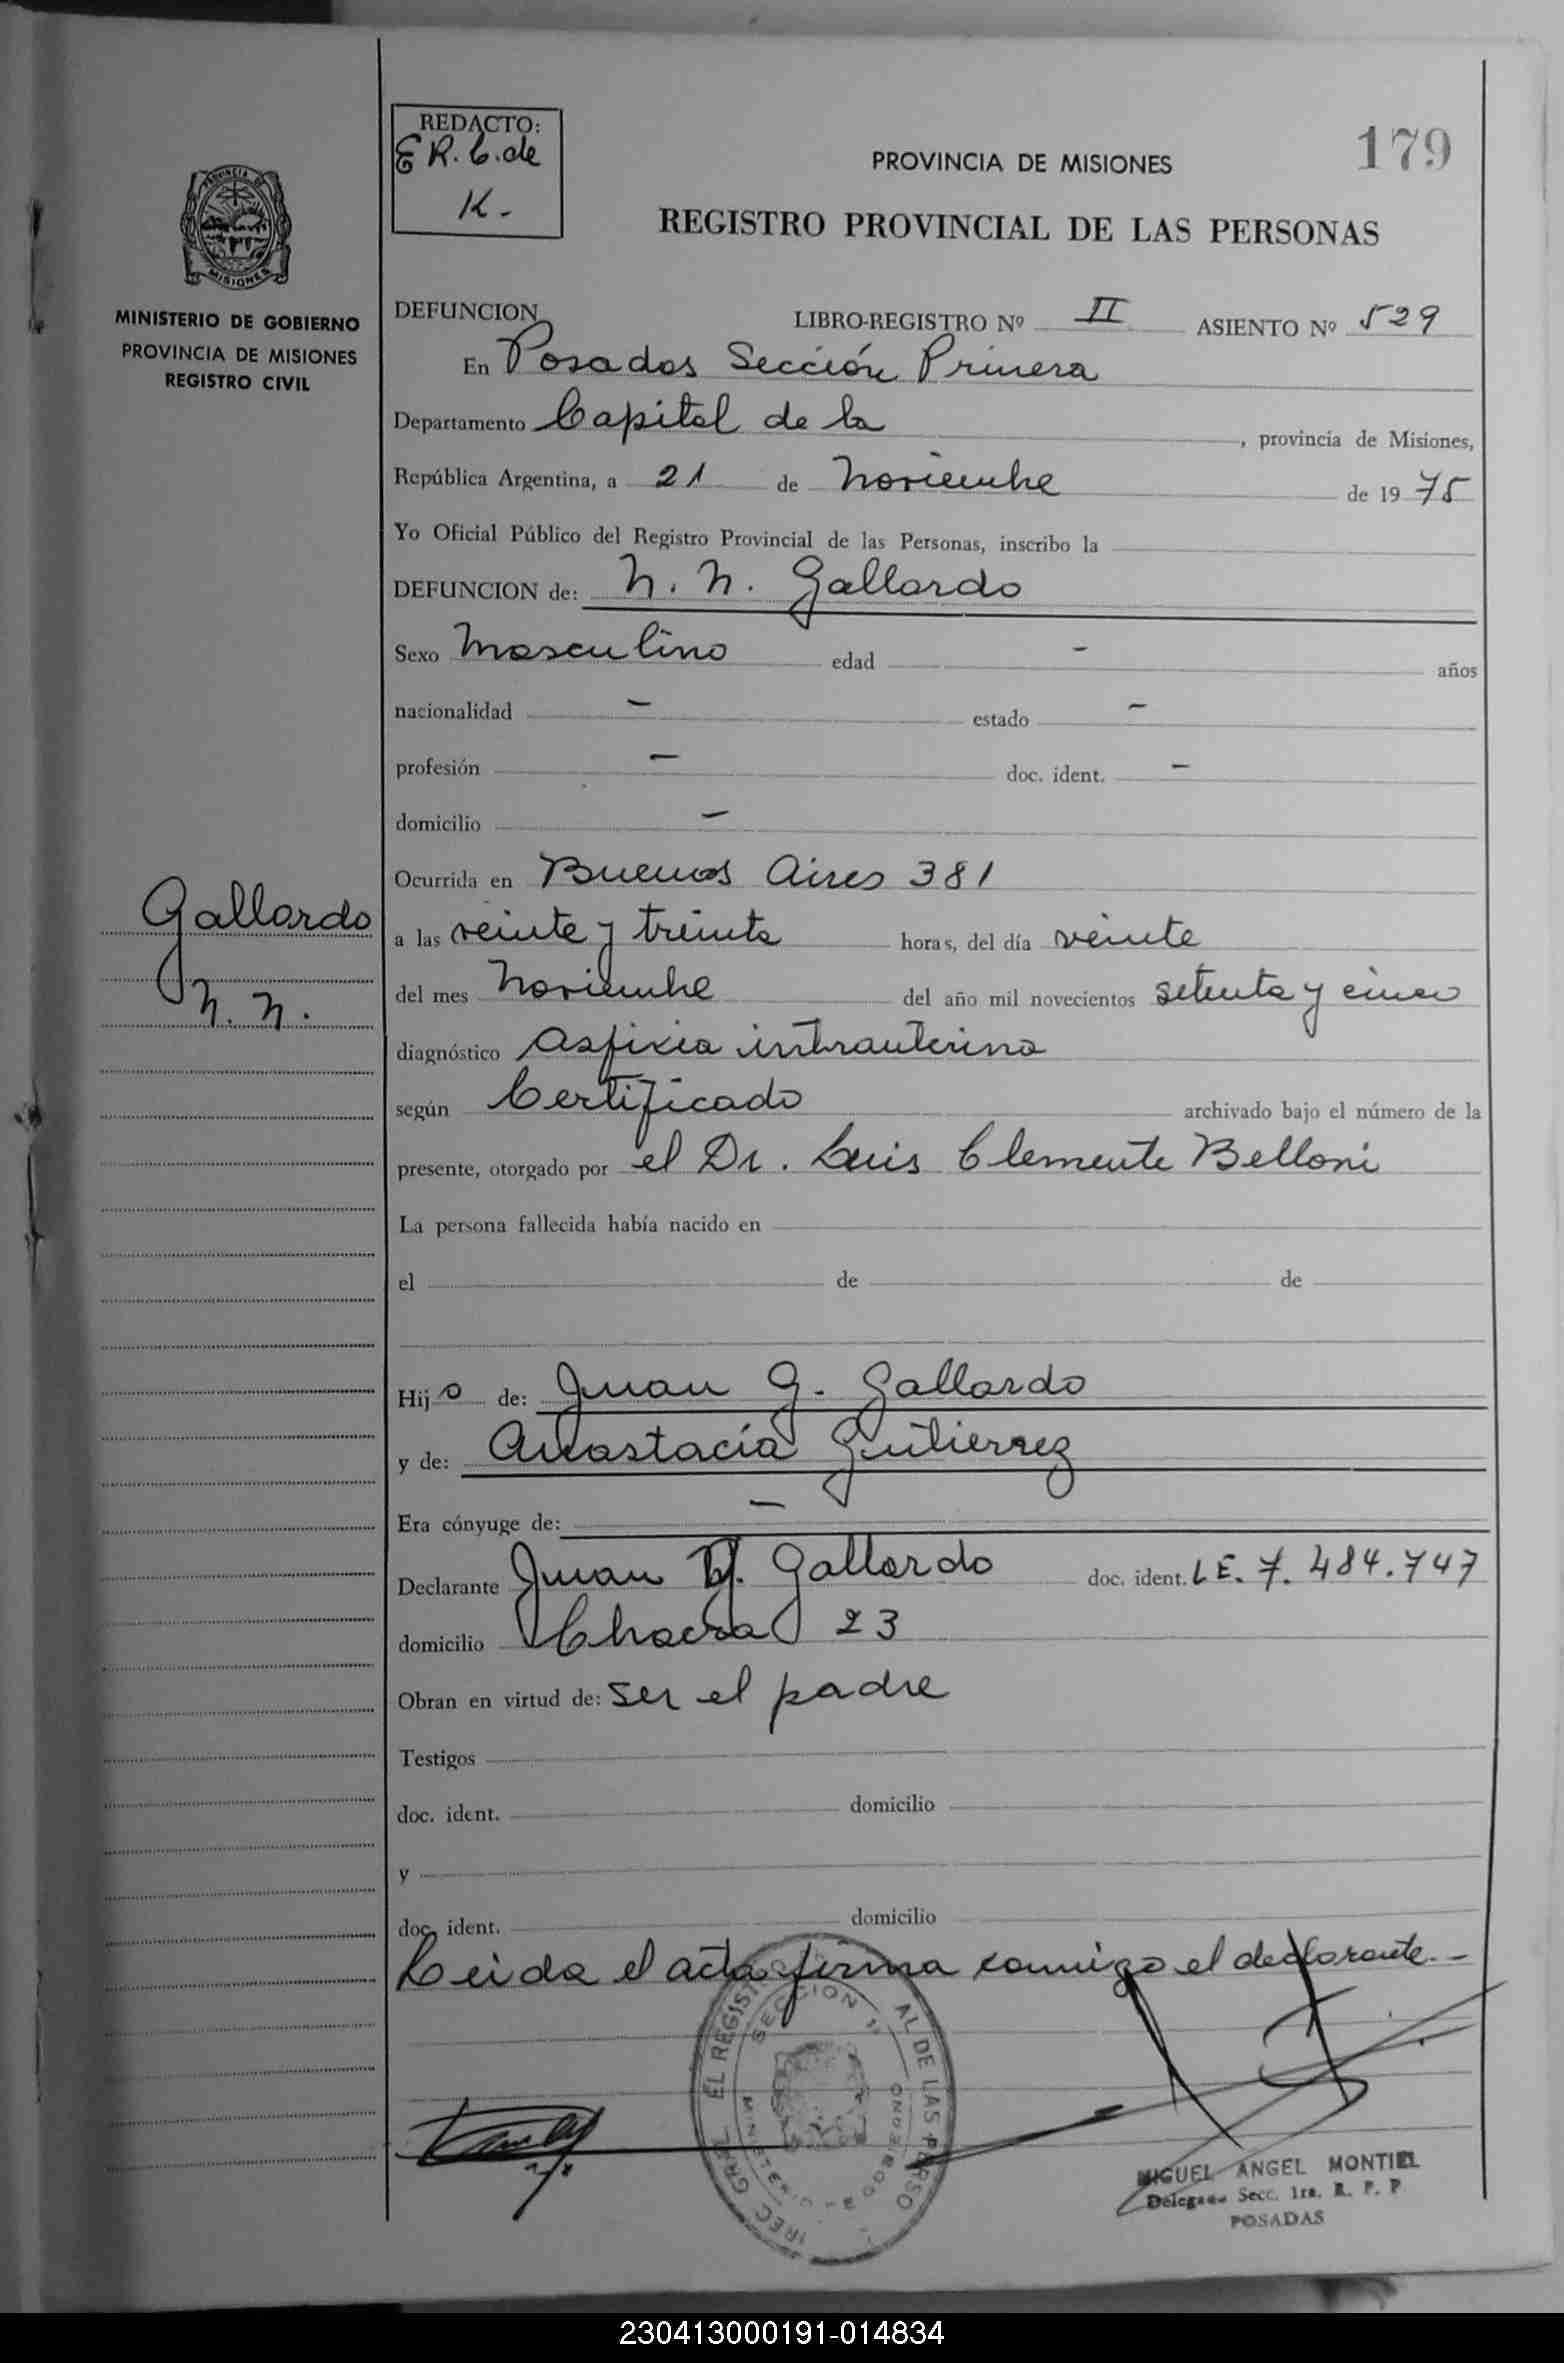 REDACTO:
E R. C. de
K.-
179
PROVINCIA DE MISIONES
REGISTRO PROVINCIAL DE LAS PERSONAS
PROVINCIA DE
MISIONES
MINISTERIO DE GOBIERNO
PROVINCIA DE MISIONES
REGISTRO CIVIL
DEFUNCION LIBRO-REGISTRO Nº II ASIENTO Nº 529
En Posadas Sección Primera
Departamento Capital de la, provincia de Misiones,
República Argentina, a 21 de Noviembre de 1975
Yo Oficial Público del Registro Provincial de las Personas, inscribo la
DEFUNCION de: N. N. Gallardo
Sexo Masculino edad - años
nacionalidad - estado -
profesión - doc. ident. -
domicilio -
Ocurrida en Buenos Aires 381
Gallardo
N. N.
a las veinte y treinta horas, del día veinte
del mes Noviembre del año mil novecientos setenta y cinco
diagnóstico Asfixia intrauterina
según Certificado archivado bajo el número de la
presente, otorgado por el Dr. Luis Clemente Belloni
La persona fallecida había nacido en
el de de
Hijo de: Juan G. Gallardo
y de: Anastacia Gutierrez
Era cónyuge de: -
Declarante Juan G. Gallardo doc. ident. L E. 7. 484.747
domicilio Chacra 23
Obran en virtud de: ser el padre
Testigos
doc. ident. domicilio
y
doc. ident. domicilio
Leida el acta firma conmigo el declarante.-
EL REGIST AL DE LAS PERSO
SECCION 1ª
MINISTERIO DE GOBIERNO
MIGUEL ANGEL MONTIEL
Delegado Secc. 1ra. R. P. P
POSADAS
230413000191-014834